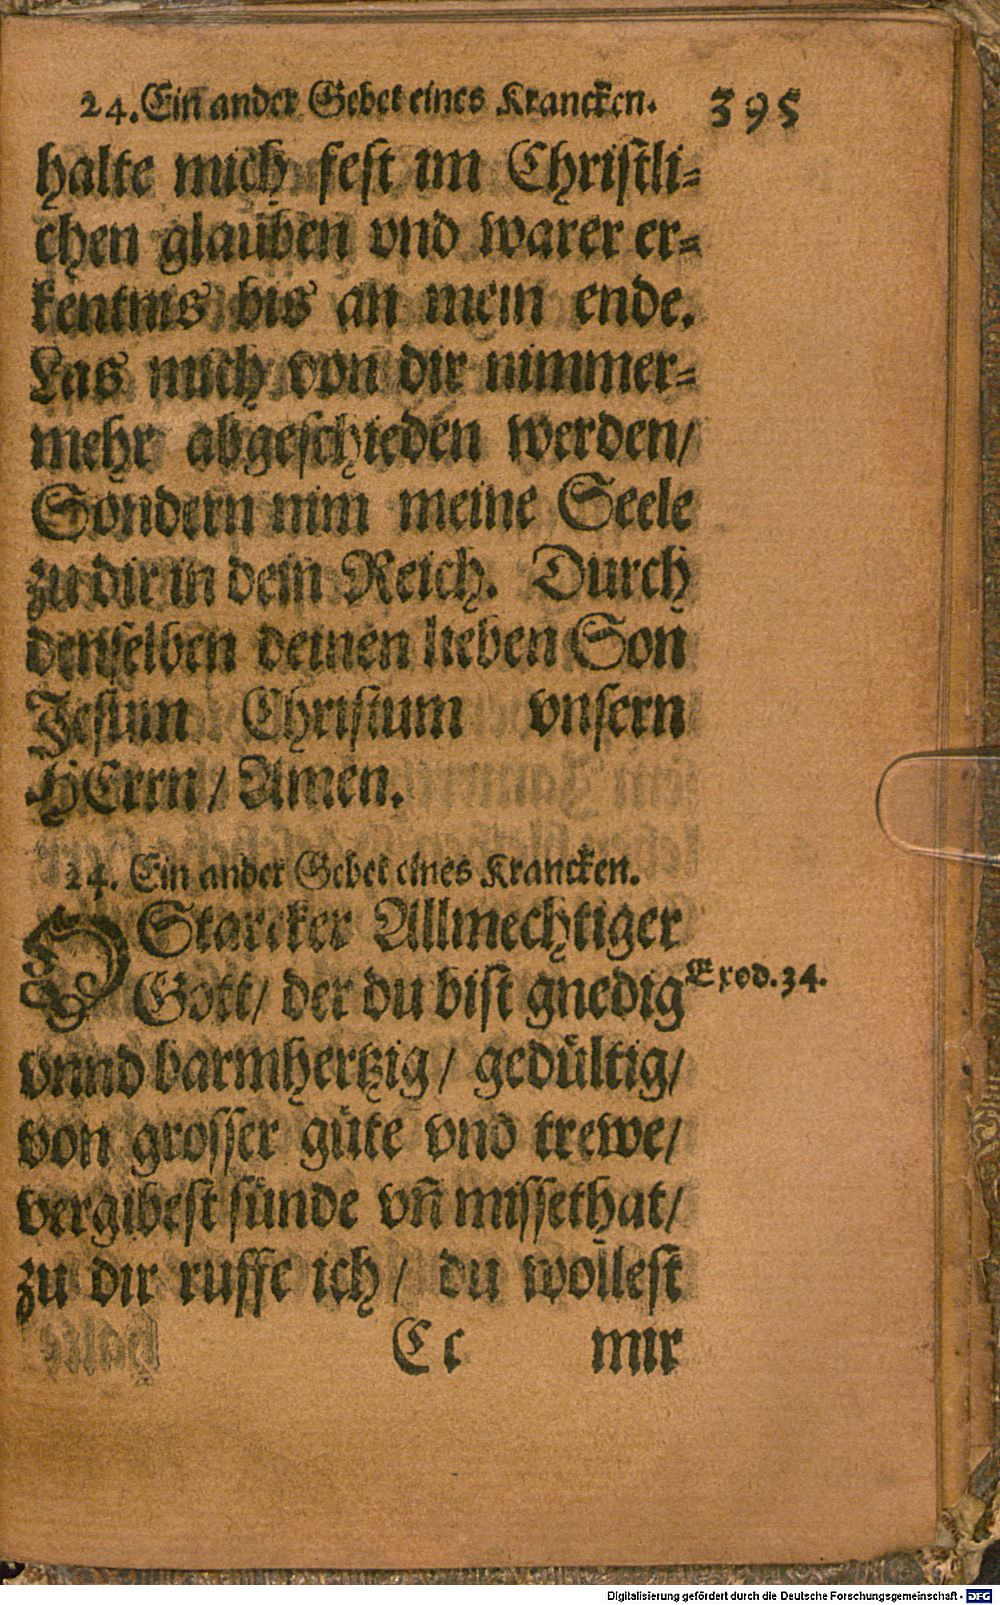 24. Ein ander Gebet eines Krancken. 395
halte mich fest im Christli-
chen glauben vnd warer er-
kentnis bis an mein ende.
Las mich von dir nimmer-
mehr abgeschieden werden/
Sondern nim meine Seele
zu dir in dein Reich. Durch
denselben deinen lieben Son
Jesum Christum vnsern
HErrn / Amen.
24. Ein ander Gebet eines Krancken.
O Starcker Allmechtiger
Gott/ der du bist gnedig
Exod. 34.
vnnd barmhertzig / gedültig/
von grosser güte vnd trewe/
vergibest sünde vn̄ missethat/
zu dir ruffe ich / du wollest
Cc mir
Digitalisierung gefördert durch die Deutsche Forschungsgemeinschaft - DFG